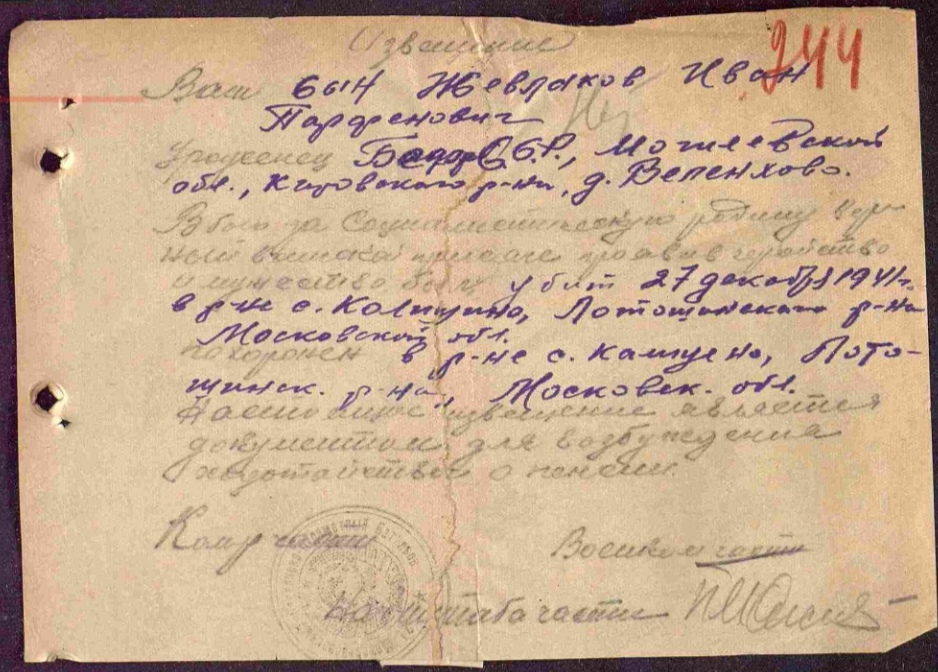 Извещение
244
Ваш сын Жевлаков Иван
Парфенович
Уроженец БССР, Могилевской
обл., Кировского р-на, д.
В бою за Социалистическую родину вер-
ный воинской присяге проявив геройство
и мужество был убит 27 декабря 1941 г.
в р-не с. Лотошинского р-на
Московской обл.
похоронен в р-не с. Лото-
шинск. р-на, Московск. обл.
Настоящее извещение является
документом для возбуждения
ходатайства о пенсии.
Ком. части Военком части
Нач штаба части